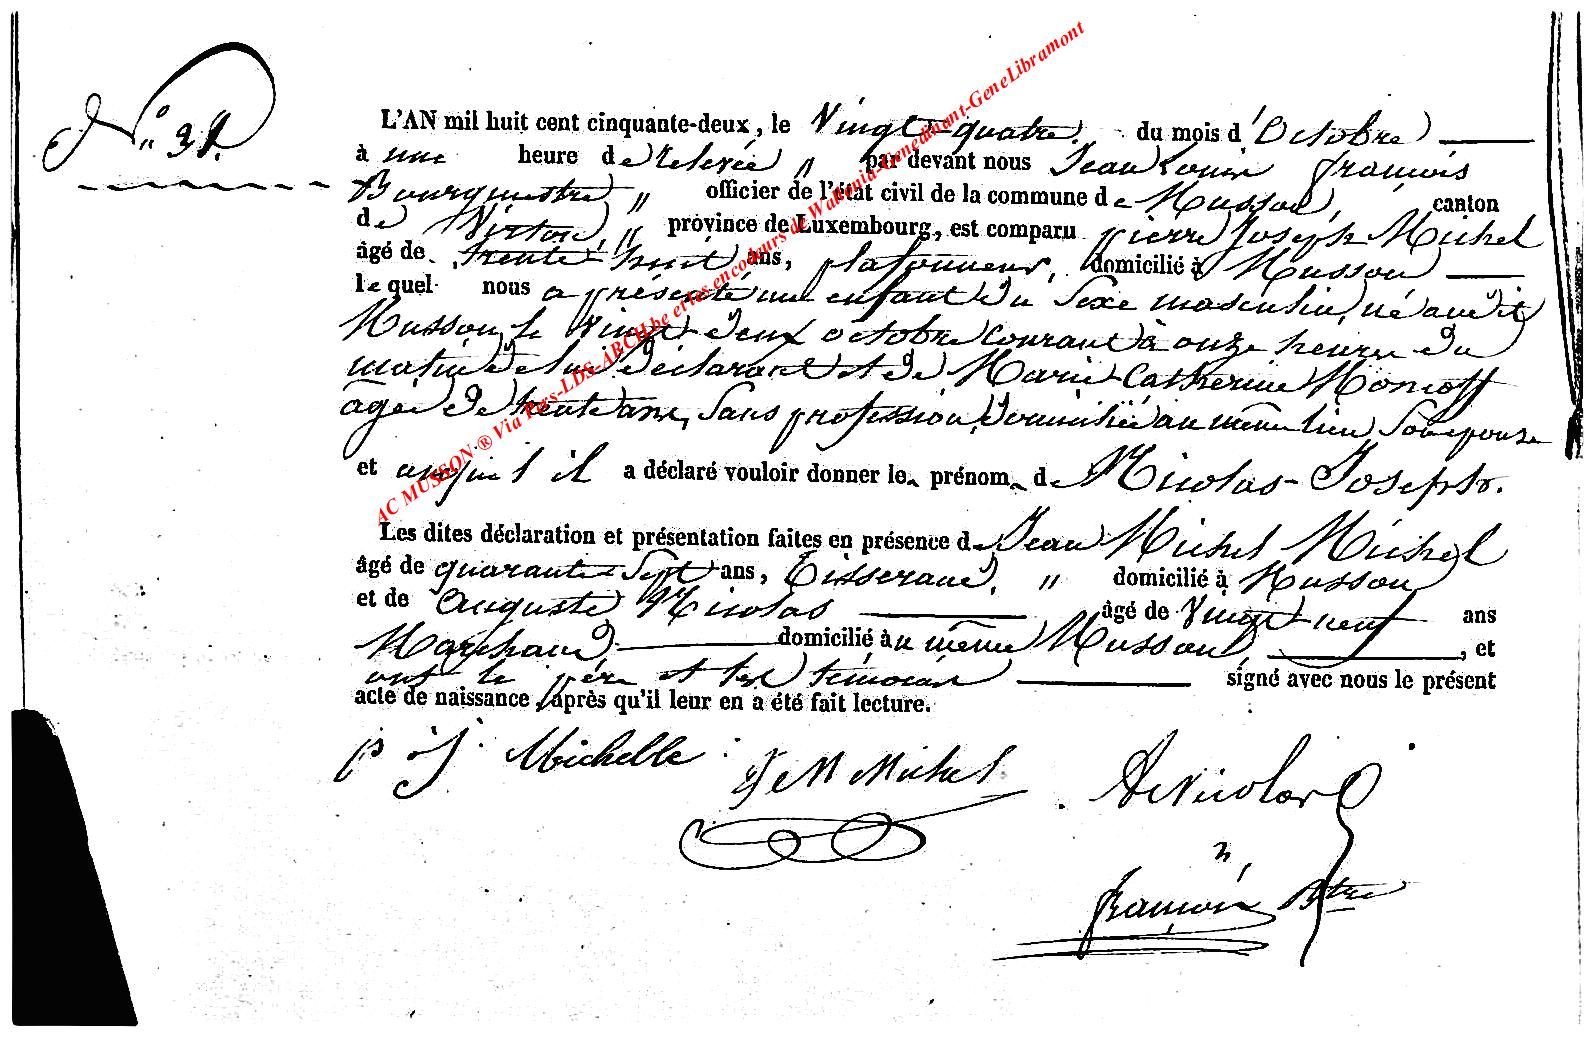 N.° 31.
L'AN mil huit cent cinquante-deux, le Vingt-quatre. du mois d'Octobre
à une heure de relevée „ par devant nous Jean Louis françois
Bourgmestre „ officier de l'état civil de la commune de Musson, canton
de Virton, „ province de Luxembourg, est comparu pierre Joseph Michel
âgé de trente huit ans, plafonneur, domicilié à Musson
lequel nous a présenté un enfant du sexe masculin, né audit
Musson, le vingt deux octobre courant à onze heures du
matin de lui déclarant et de Marie-Catherine
agée de trente ans, sans profession, domiciliée au même lieu son epouse
et auquel il a déclaré vouloir donner le prénom de Nicolas-Joseph.
Les dites déclaration et présentation faites en présence de Jean Michel Michel
âgé de quarante-sept ans, Tisserand, „ domicilié à Musson
et de Auguste Nicolas âgé de vingt-neuf ans
Marchand domicilié au même Musson, et
ont le père et les témoins signé avec nous le présent
acte de naissance, après qu'il leur en a été fait lecture.
p j Michelle J M Michel A Nicolas
françois Btre
AC MUSSON ® Via Pars-LDS-ARCH.be et les encodeurs de Wallonia-Genedinant-GeneLibramont